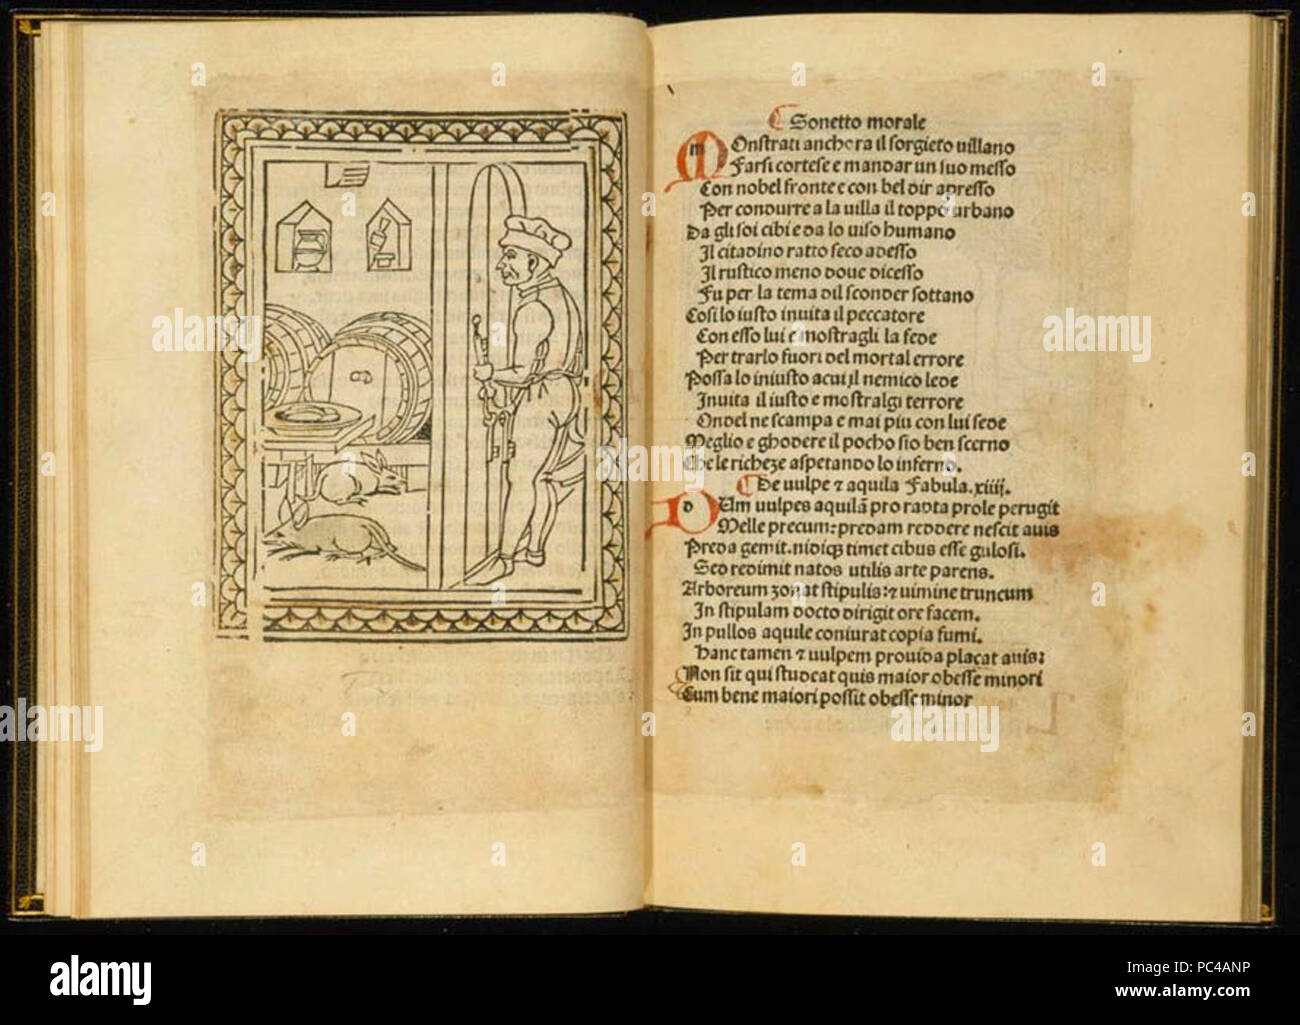 Sonetto morale
mOnstrati anchora il sorgieto uillano
Farsi cortese e mandar un suo messo
Con nobel fronte e con bel dir apresso
Per condurre a la uilla il toppo urbano
Da gli soi cibi e da lo uiso humano
Il citadino ratto seco adesso
Il rustico meno doue dicesso
Fu per la tema dil sconder sottano
Cosi lo iusto inuita il peccatore
Con esso lui e mostragli la fede
Per trarlo fuori del mortal errore
Possa lo iniusto acui il nemico lede
Inuita il iusto e mostralgi terrore
Ondel ne scampa e mai piu con lui sede
Meglio e ghodere il pocho sio ben scerno
Che le richeze aspetando lo inferno.
De uulpe ⁊ aquila Fabula. xiiij.
dUm uulpes aquilā pro rapta prole perugit
Melle precum: predam reddere nescit auis
Preda gemit. nidiqꝫ timet cibus esse gulosi.
Sed redimit natos utilis arte parens.
Arboreum zonat stipulis: ⁊ uimine truncum
In stipulam docto dirigit ore facem.
In pullos aquile coniurat copia fumi.
hanc tamen ⁊ uulpem prouida placat auis:
Non sit qui studeat quis maior obesse minori
Cum bene maiori possit obesse minor
a alamy stock photo
alamy
Image ID: PC4ANP
www.alamy.com